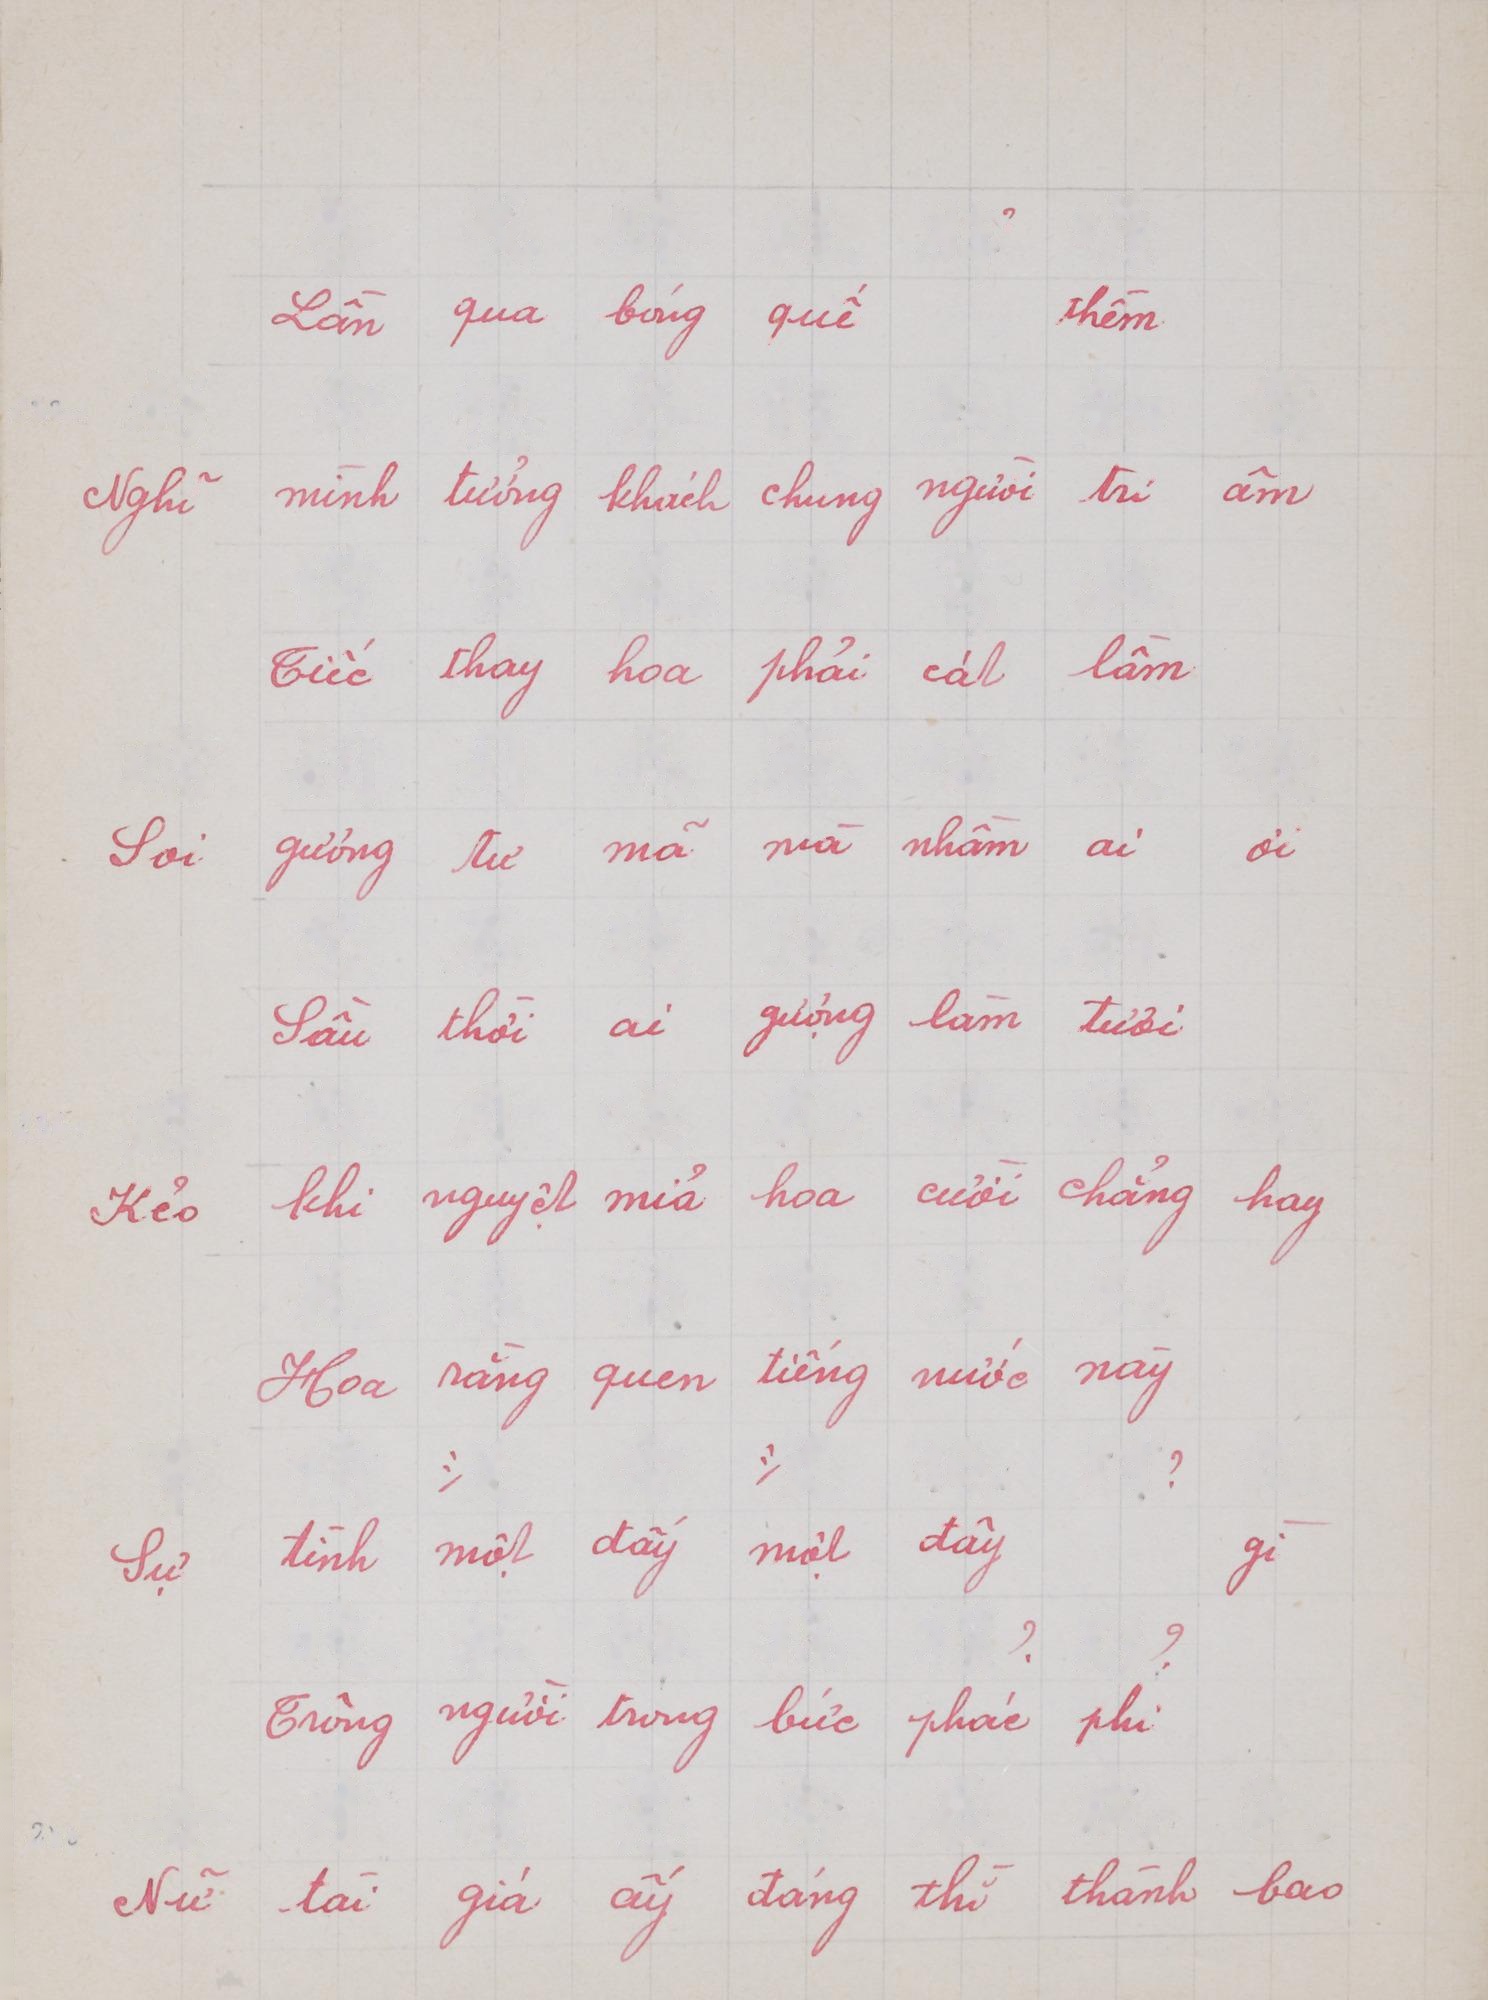 ?
Lần qua bóng quế thềm
Nghĩ mình tưởng khách chung người tri âm
Tiếc thay hoa phải cát lầm
Soi gương tư mã mà nhầm ai ơi
Sầu thời ai gượng làm tươi
Kẻo khi nguyệt mỉa hoa cười chẳng hay
Hoa rằng quen tiếng nước nay
?
Sự tình một đấy một đây gì
? ?
Trông người trong bức phác phi
Nữ tài giá ấy đáng thì thành bao